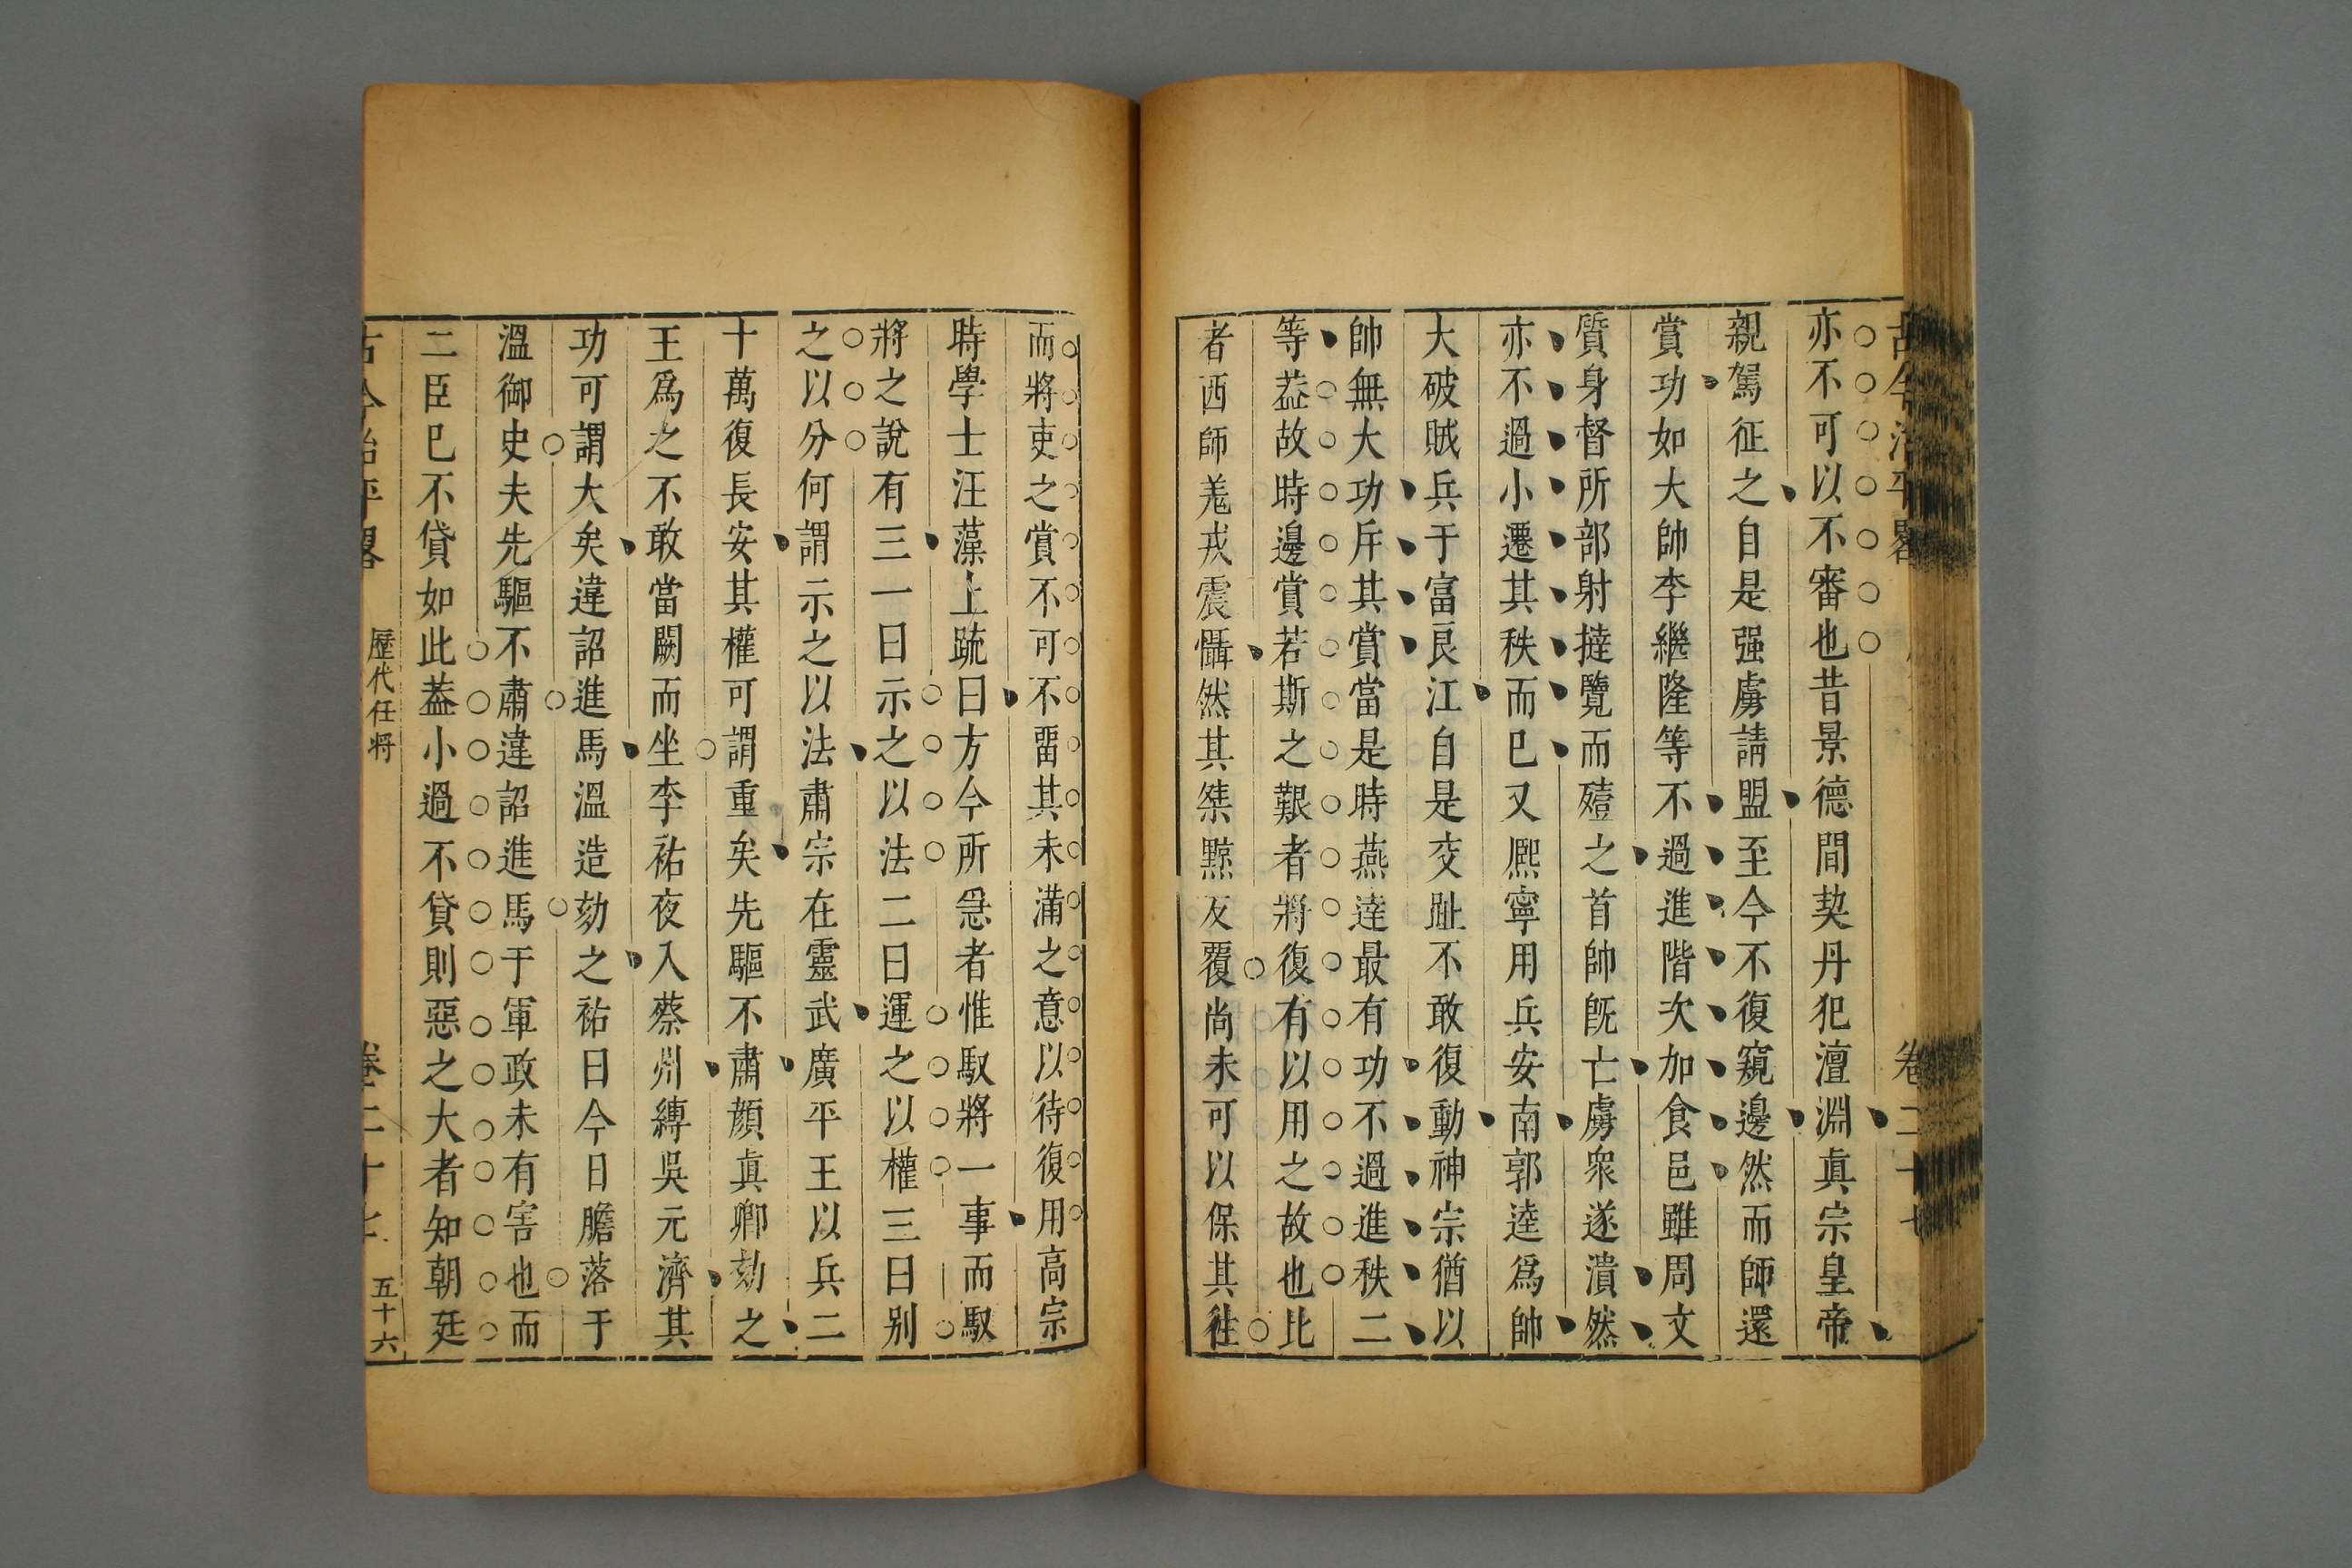 古今治平畧 卷二十七
亦不可以不審也昔景德間契丹犯澶淵真宗皇帝
親駕征之自是强虜請盟至今不復窺邊然而師還
賞功如大帥李繼隆等不過進階次加食邑雖周文
質身督所部射撻覽而殪之首帥旣亡虜衆遂潰然
亦不過小遷其秩而已又熈寧用兵安南郭逵爲帥
大破賊兵于富良江自是交趾不敢復動神宗猶以
帥無大功斥其賞當是時燕達最有功不過進秩二
等葢故時邊賞若斯之艱者將復有以用之故也比
者西師羗戎震懾然其桀黠反覆尚未可以保其往
而將吏之賞不可不畱其未滿之意以待復用高宗
時學士汪藻上疏曰方今所急者惟馭將一事而馭
將之說有三一曰示之以法二曰運之以權三曰别
之以分何謂示之以法肅宗在靈武廣平王以兵二
十萬復長安其權可謂重矣先驅不肅顔真卿劾之
王爲之不敢當闕而坐李祐夜入蔡州縛吳元濟其
功可謂大矣違詔進馬溫造劾之祐曰今日膽落于
溫御史夫先驅不肅違詔進馬于軍政未有害也而
二臣已不貸如此葢小過不貸則惡之大者知朝廷
古今治平畧 歷代任將 卷二十七 五十六